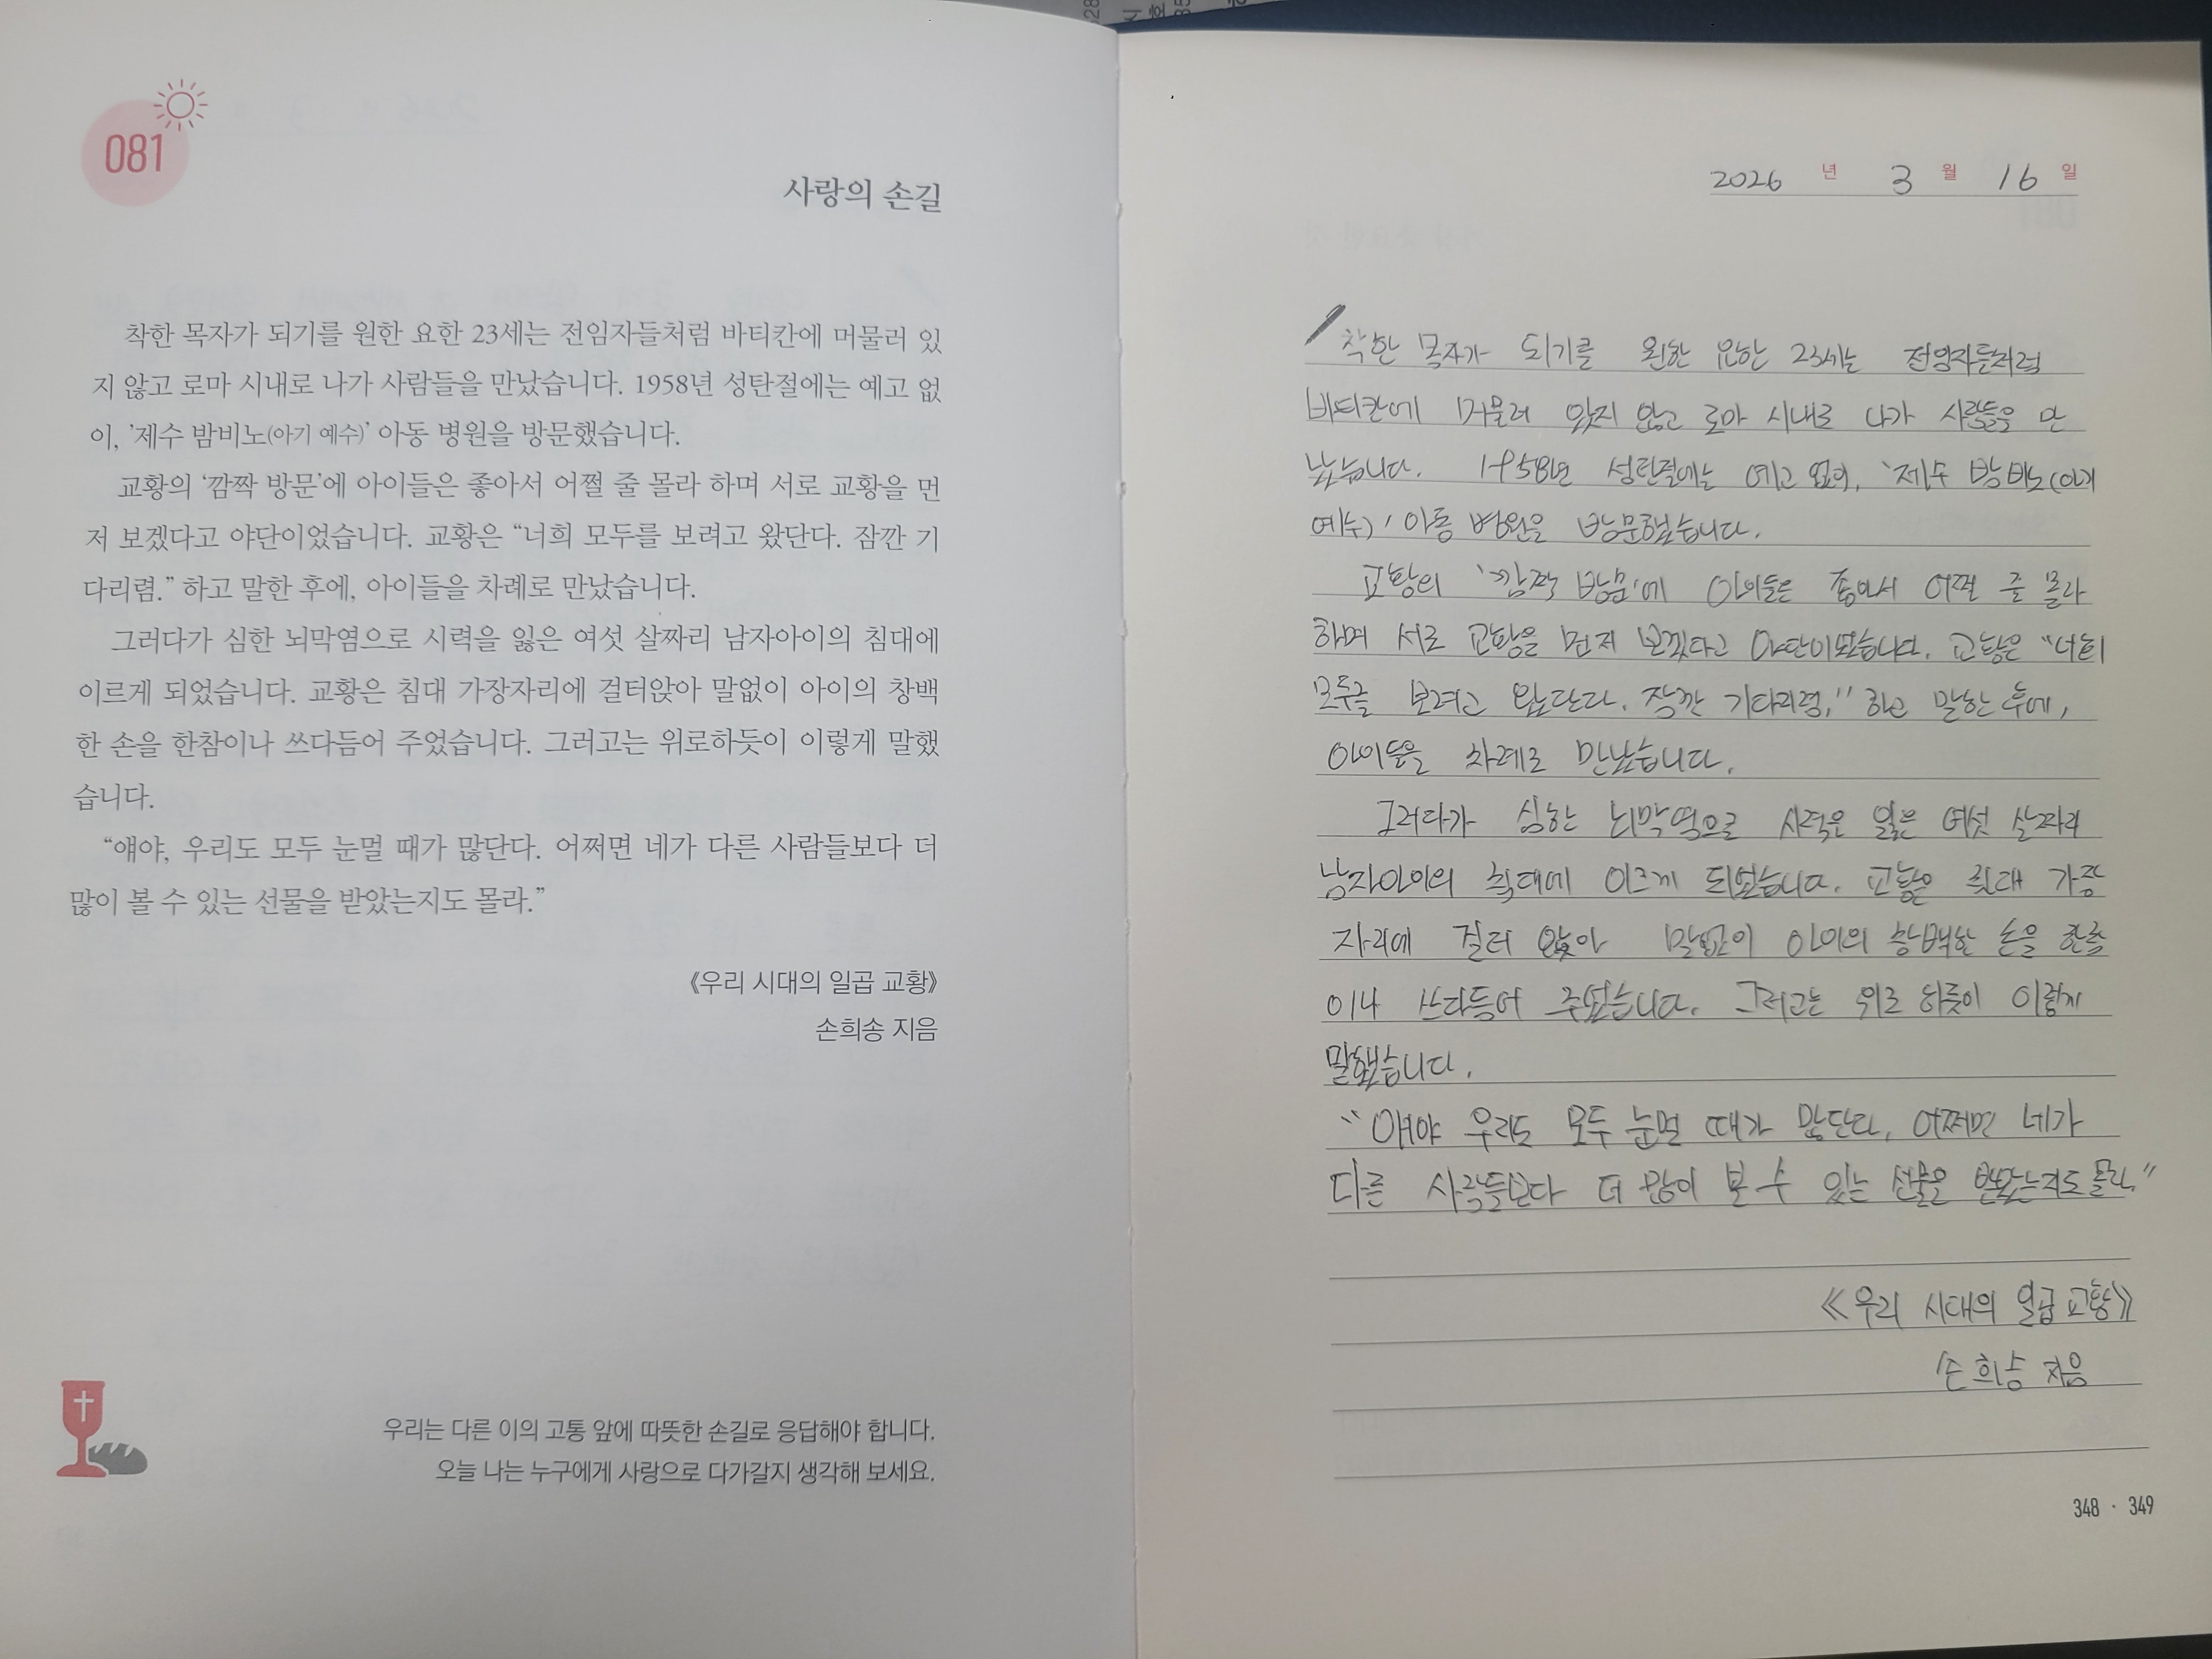 081
사랑의 손길
착한 목자가 되기를 원한 요한 23세는 전임자들처럼 바티칸에 머물러 있
지 않고 로마 시내로 나가 사람들을 만났습니다. 1958년 성탄절에는 예고 없
이, '제수 밤비노(아기 예수)' 아동 병원을 방문했습니다.
교황의 '깜짝 방문'에 아이들은 좋아서 어쩔 줄 몰라 하며 서로 교황을 먼
저 보겠다고 야단이었습니다. 교황은 “너희 모두를 보려고 왔단다. 잠깐 기
다리렴.” 하고 말한 후에, 아이들을 차례로 만났습니다.
그러다가 심한 뇌막염으로 시력을 잃은 여섯 살짜리 남자아이의 침대에
이르게 되었습니다. 교황은 침대 가장자리에 걸터앉아 말없이 아이의 창백
한 손을 한참이나 쓰다듬어 주었습니다. 그러고는 위로하듯이 이렇게 말했
습니다.
“얘야, 우리도 모두 눈멀 때가 많단다. 어쩌면 네가 다른 사람들보다 더
많이 볼 수 있는 선물을 받았는지도 몰라.”
《우리 시대의 일곱 교황》
손희송 지음
우리는 다른 이의 고통 앞에 따뜻한 손길로 응답해야 합니다.
오늘 나는 누구에게 사랑으로 다가갈지 생각해 보세요.
2026 년 3 월 16 일
착한 목자가 되기를 원한 요한 23세는 전임자들처럼
바티칸에 머물러 있지 않고 로마 시내로 나가 사람들을 만
났습니다. 1958년 성탄절에는 예고 없이, '제수 밤비노(아기
예수)' 아동 병원을 방문했습니다.
교황의 '깜짝 방문'에 아이들은 좋아서 어쩔 줄 몰라
하며 서로 교황을 먼저 보겠다고 야단이었습니다. 교황은 “너희
모두를 보려고 왔단다. 잠깐 기다리렴,” 하고 말한 후에,
아이들을 차례로 만났습니다.
그러다가 심한 뇌막염으로 시력을 잃은 여섯 살짜리
남자아이의 침대에 이르게 되었습니다. 교황은 침대 가장
자리에 걸터 앉아 말없이 아이의 창백한 손을 한참
이나 쓰다듬어 주었습니다. 그러고는 위로 하듯이 이렇게
말했습니다.
“얘야 우리도 모두 눈멀 때가 많단다. 어쩌면 네가
다른 사람들보다 더 많이 볼 수 있는 선물을 받았는지도 몰라.”
《우리 시대의 일곱 교황》
손희송 지음
348 · 349